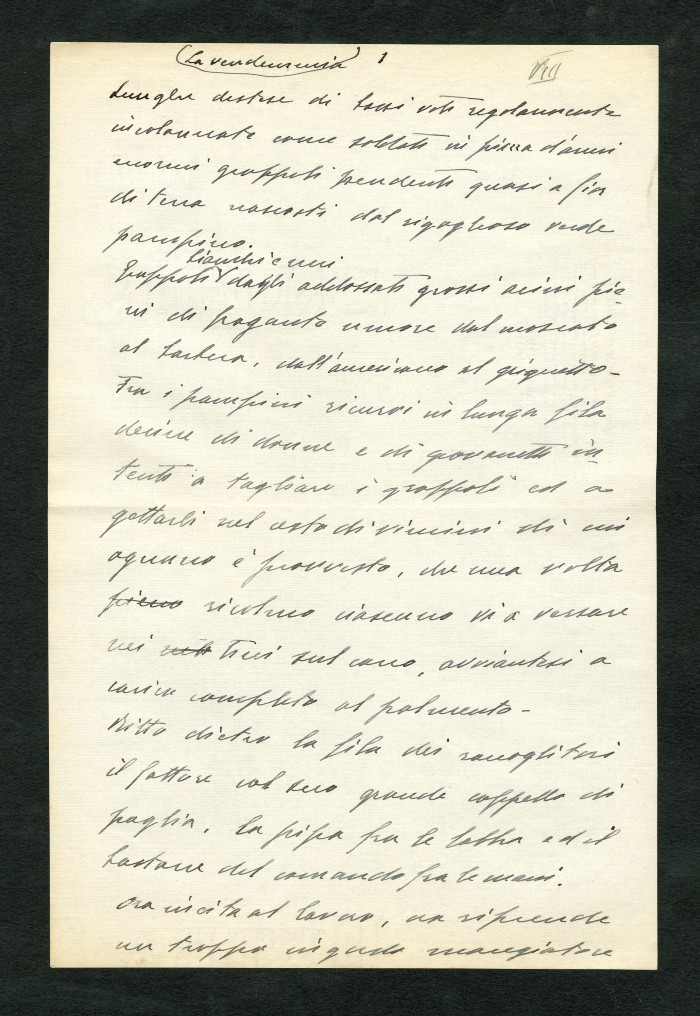 La vendemmia 1
VIII
Lunghe distese di tassi viti regolarmente
incolonnate come soldati in piazza d'armi
enormi grappoli pendenti quasi a fior
di terra nascosti dal rigoglioso verde
pampino.
bianchi e neri
Grappoli dagli addossati grossi acini pie-
ni di fragante umore dal moscato
al barbera, dall'americano al
Tra i pampini ricurvi in lunga fila
decine di donne e di giovanetti in-
tenti a tagliare i grappoli ed a
gettarli nel cesto di vimini di cui
ognuno è provvisto, che una volta
pieno ricolmo ciascuno va a versare
nei tini sul carro, avviantesi a
carico completo al palmento-
Ritto dietro la fila dei raccoglitori
il fattore col suo grande cappello di
paglia, la pipa fra le labbra ed il
bastone del comando fra le mani.
Ora incita al lavoro, ora riprende
un troppo ingordo mangiatore